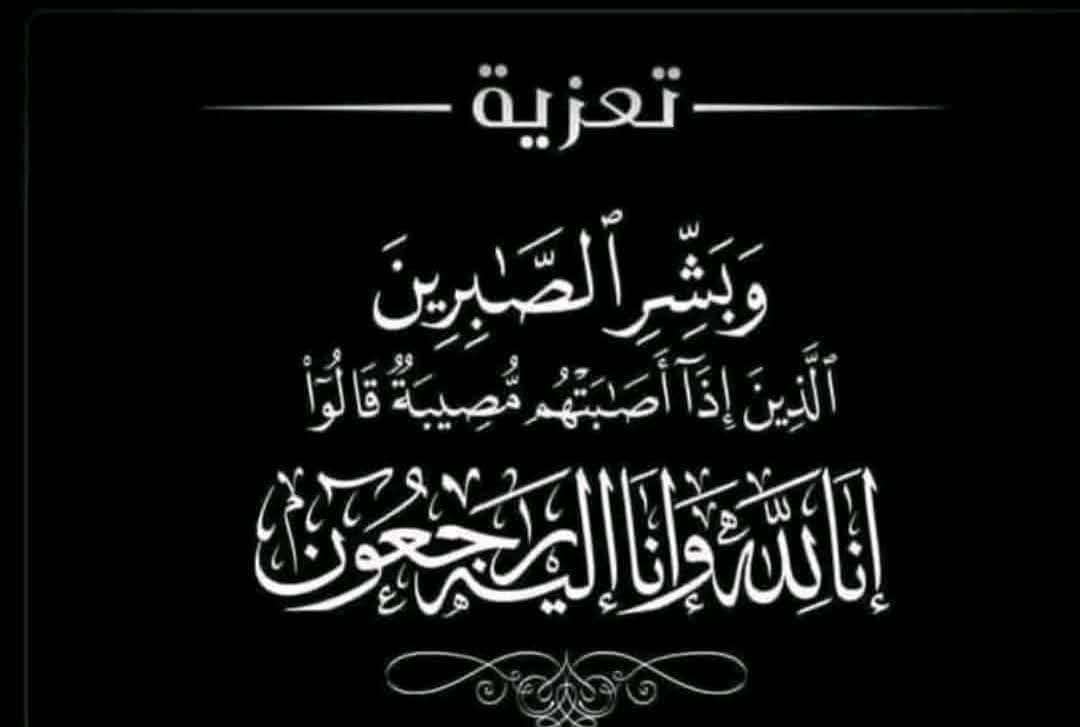 تعزية
وَبَشِّرِ ٱلصَّـٰبِرِينَ
ٱلَّذِينَ إِذَآ أَصَـٰبَتْهُم مُّصِيبَةٌ قَالُوٓا۟
إِنَّا لِلَّهِ وَإِنَّا إِلَيْهِ رَاجِعُونَ